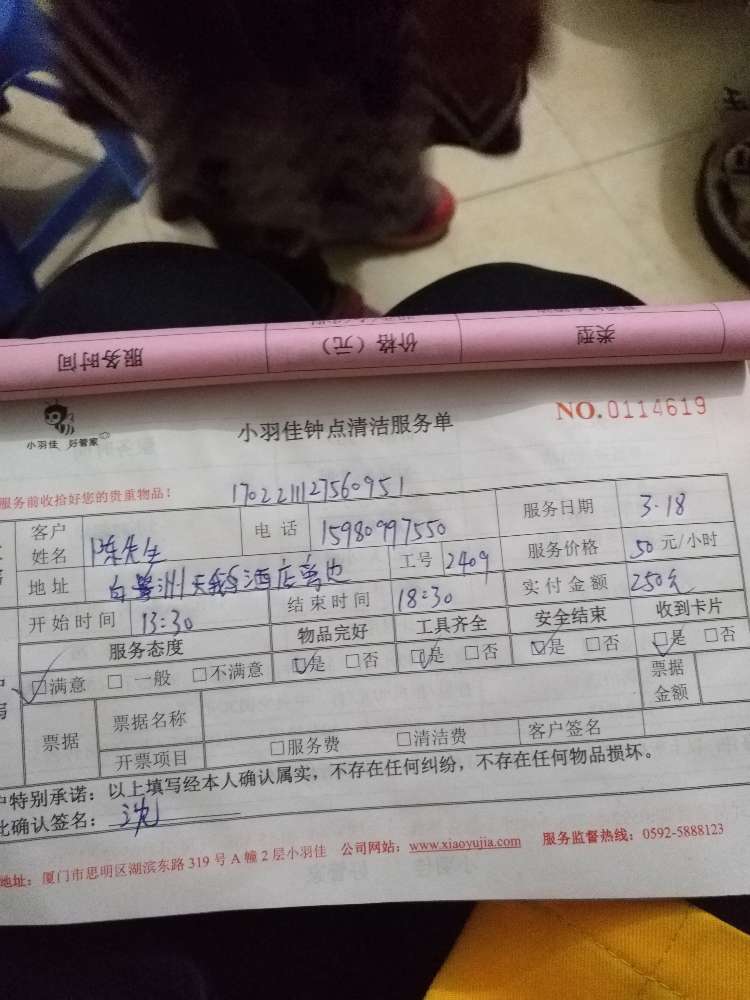 服务时间 价格（元） 类型
小羽佳 好管家
小羽佳钟点清洁服务单 NO.0114619
服务前收拾好您的贵重物品！ 1702211127560951
客户姓名 陈先生 电话 15980997550 服务日期 3.18
地址 白鹭洲天鹅酒店 工号 2409 服务价格 50元/小时
开始时间 13:30 结束时间 18:30 实付金额 250元
服务态度 物品完好 工具齐全 安全结束 收到卡片
☑满意 □一般 □不满意 ☑是 □否 ☑是 □否 ☑是 □否 ☑是 □否
票据 票据名称 票据金额
开票项目 □服务费 □清洁费 客户签名
户特别承诺：以上填写经本人确认属实，不存在任何纠纷，不存在任何物品损坏。
此确认签名：
地址：厦门市思明区湖滨东路319号A幢2层小羽佳 公司网站：www.xiaoyujia.com 服务监督热线：0592-5888123